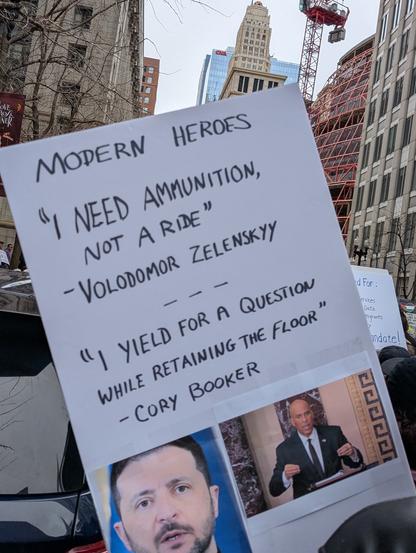 MODERN HEROES
"I NEED AMMUNITION,
NOT A RIDE"
- VOLODOMOR ZELENSKYY
- - -
"I YIELD FOR A QUESTION
WHILE RETAINING THE FLOOR"
- CORY BOOKER
d For: